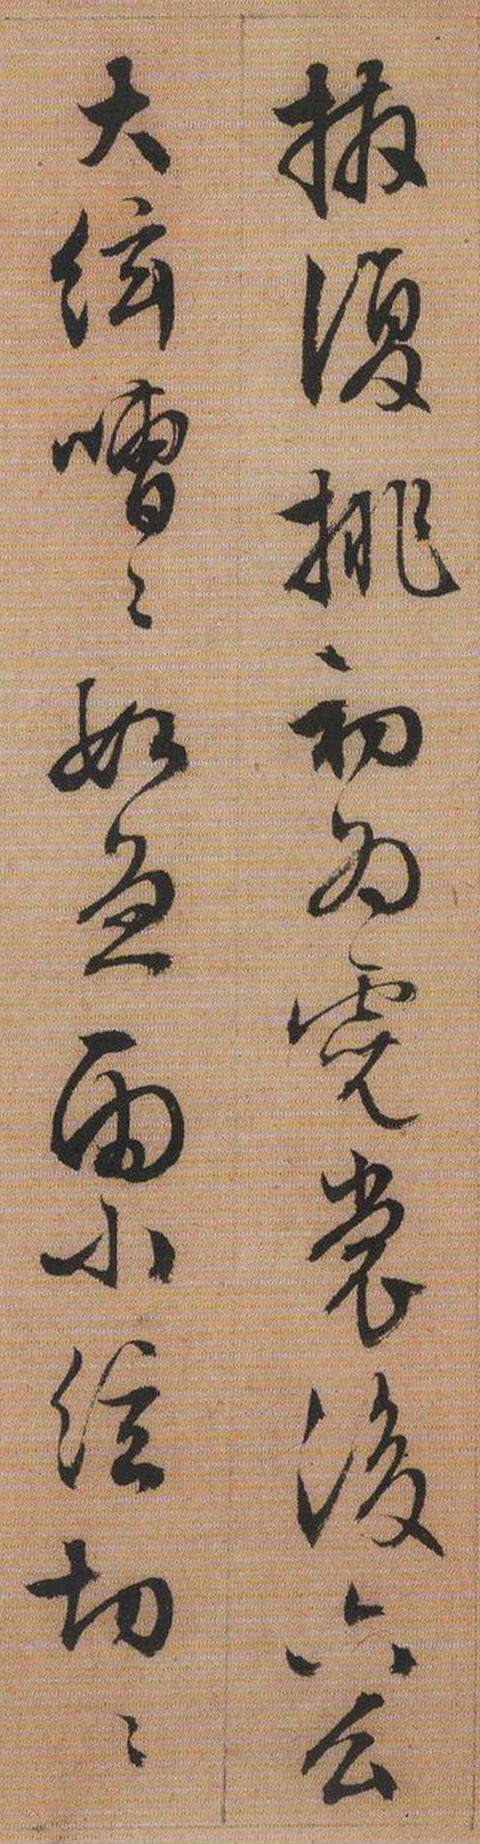 撥復挑初為霓裳後六幺
大絃嘈〻如急雨小絃切〻